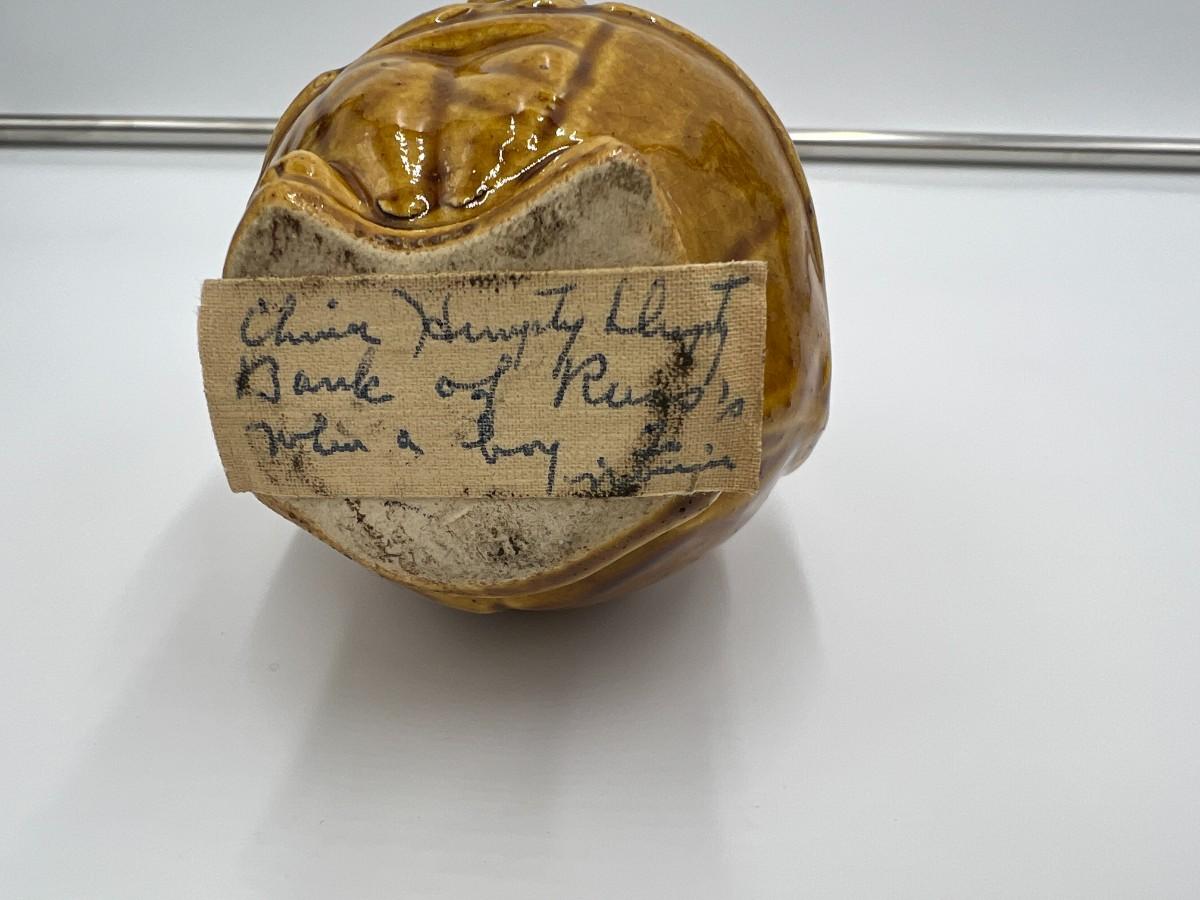 China Humpty Dumpty
Bank of Russ's
when a boy